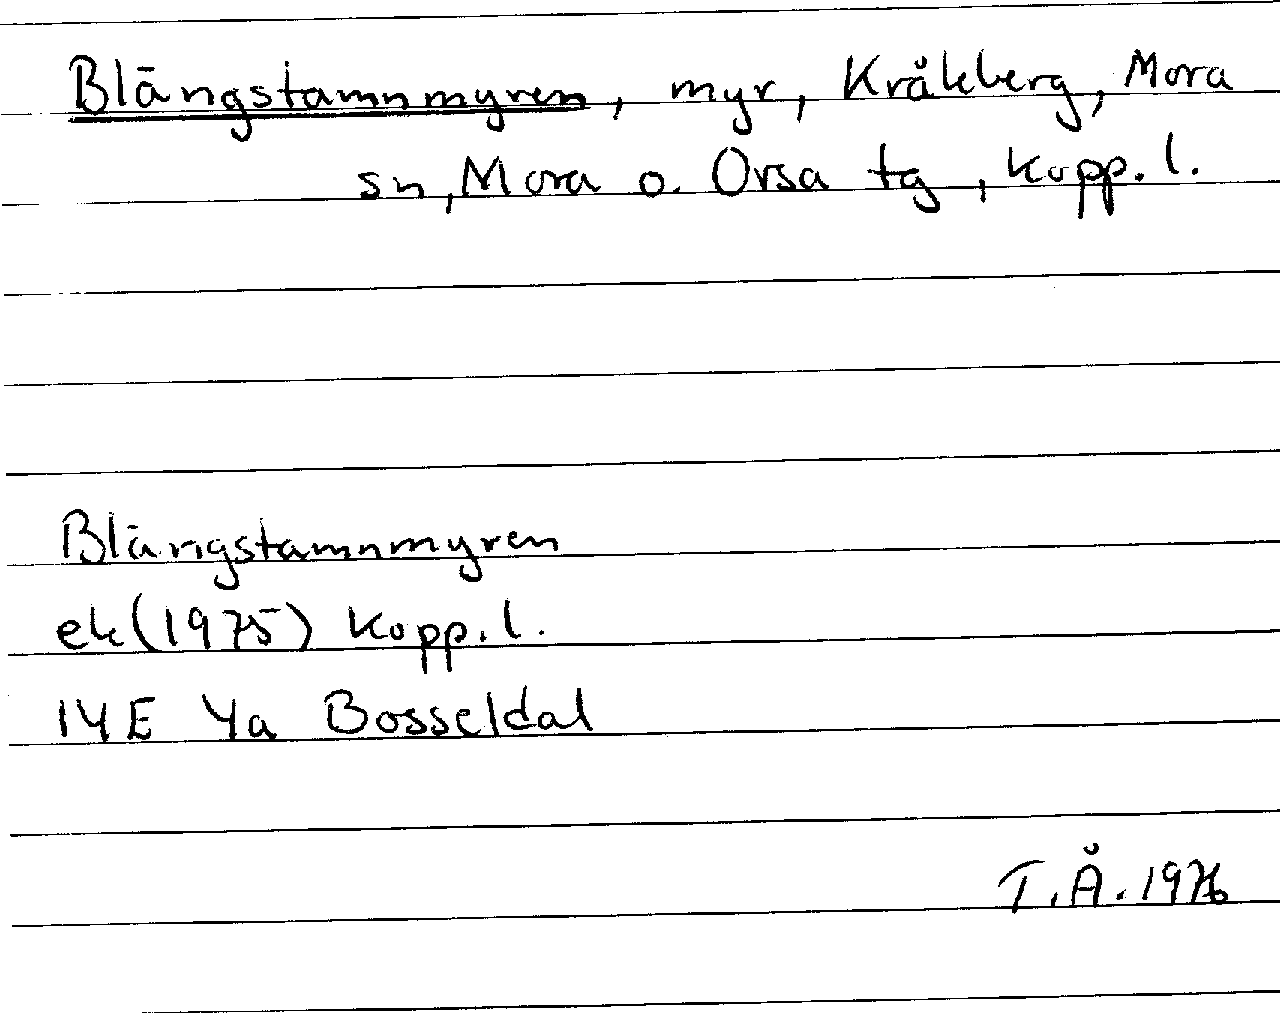 Blängstamnmyren, myr, Kråkberg, Mora
sn, Mora o. Orsa tg, Kopp. l.
Blängstamnmyren
ek (1975) Kopp. l.
14E 4a Bosseldal
T.Å. 1976